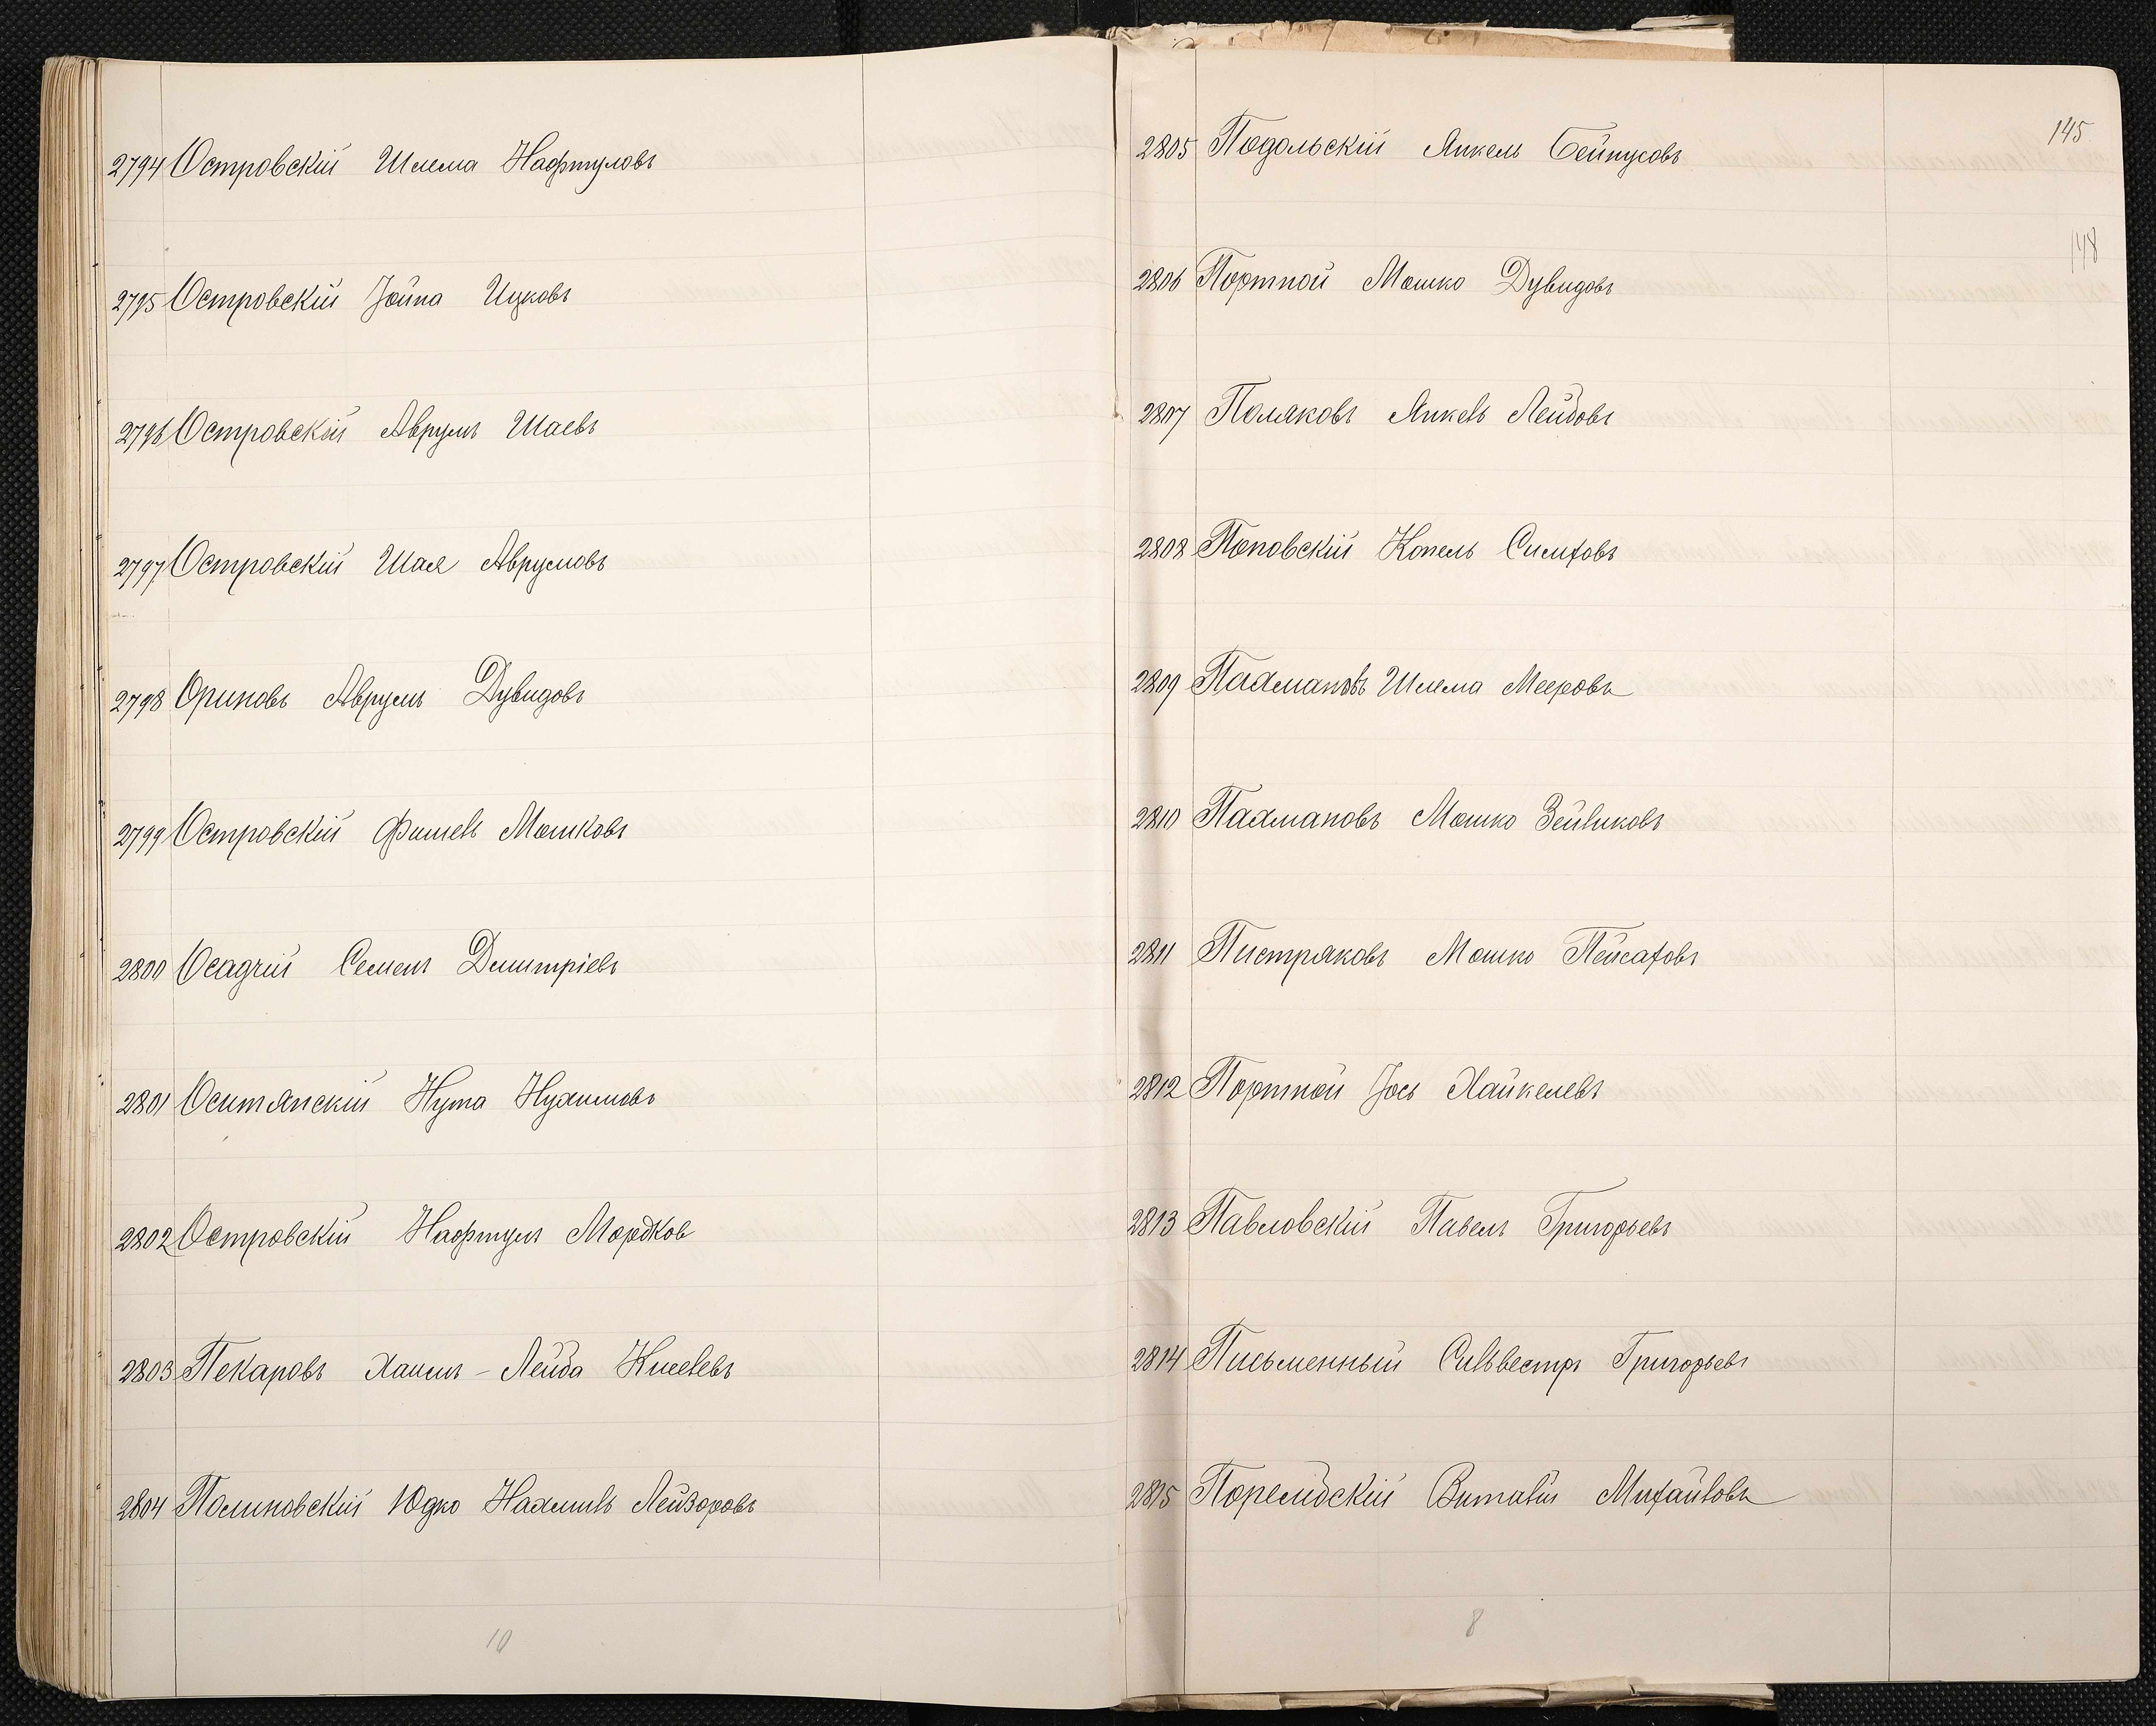 2794 Островскій Шлема Нафтуловъ
2795 Островскій Іойна Ицковъ
2796 Островскій Аврумъ Шаевъ
2797 Островскій Шая Аврумовъ
2798 Ориновъ Аврумъ Дувидовъ
2799 Островскій Фишель Мошковъ
2800 Осадчій Семенъ Дмитріевъ
2801 Оситянскій Нута Нухимовъ
2802 Островскій Нафтулъ Мордков
2803 Пекаровъ Хаимъ-Лейба
2804 Полиновскій Юдко Нахмиль Лейзоровъ
10
145
148
2805 Подольскій Янкель Бейнусовъ
2806 Портной Мошко Дувидовъ
2807 Поляковъ Янкель Лейбовъ
2808 Поповскій Копель Симховъ
2809 Пахмановъ Шлема Мееровъ
2810 Пахмановъ Мошко Зейликовъ
2811 Пистряковъ Мошко Пейсаховъ
2812 Портной Іось Хайкелевъ
2813 Павловскій Павелъ Григорьевъ
2814 Письменный Сильвестръ Григорьевъ
2815 Виталій Михайловъ
8